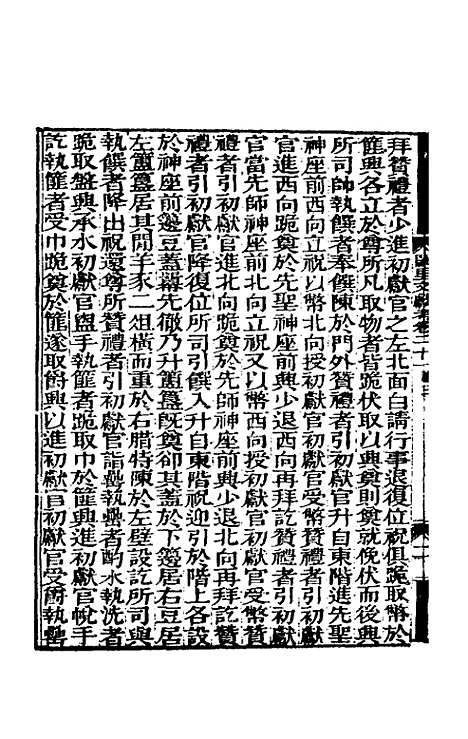 拜贊禮者少進初獻官之左北面白請行事退復位祝俱跪取幣於
篚興各立於尊所凡取物者皆跪伏取以興奠則奠就俛伏而後興
所司帥執饌者奉饌陳於門外贊禮者引初獻官升自東階進先聖
神座前西向立祝以幣北向授初獻官初獻官受幣贊禮者引初獻
官進西向跪奠於先聖神座前興少退西向再拜訖贊禮者引初獻
官當先師神座前北向立祝又以幣西向授初獻官初獻官受幣贊
禮者引初獻官進北向跪奠於先師神座前興少退北向再拜訖贊
禮者引初獻官降復位所司引饌入升自東階祝迎引於階上各設
於神座前籩豆蓋冪先徹乃升簠簋既奠卻其蓋於下籩居右豆居
左簠簋居其間羊豕二俎橫而重於右腊特陳於左壁設訖所司與
執饌者降出祝還尊所贊禮者引初獻官詣罍執罍者酌水執洗者
跪取盤興承水初獻官盥手執篚者跪取巾於篚興進初獻官帨手
訖執篚者受巾跪奠於篚遂取爵興以進初獻官初獻官受爵執罍